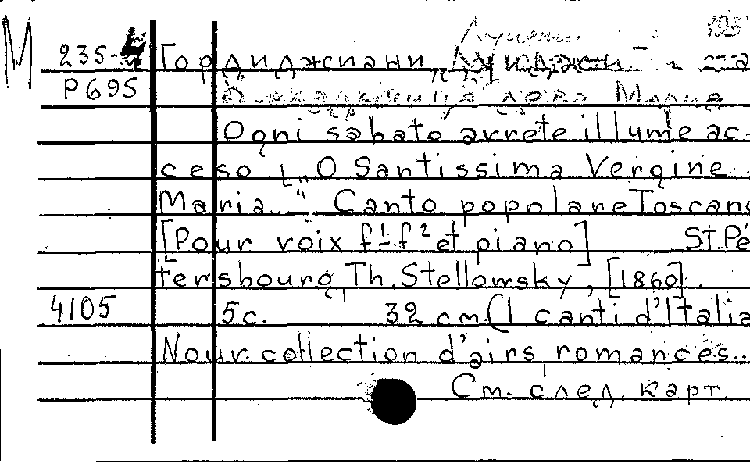 М 235-4 Гордиджиани,
Р695
Ogni sabato avrete il lume ac-
ceso „O Santissima Vergine
Maria.." Canto popolare Toscano
[Pour voix f¹-f² et piano] St.Pé
tersbourg, Th. Stellowsky, [1860].
4105 5c. 32 cm (I canti d'Italia
Nouv. collection d'airs romances..
См. след. карт.